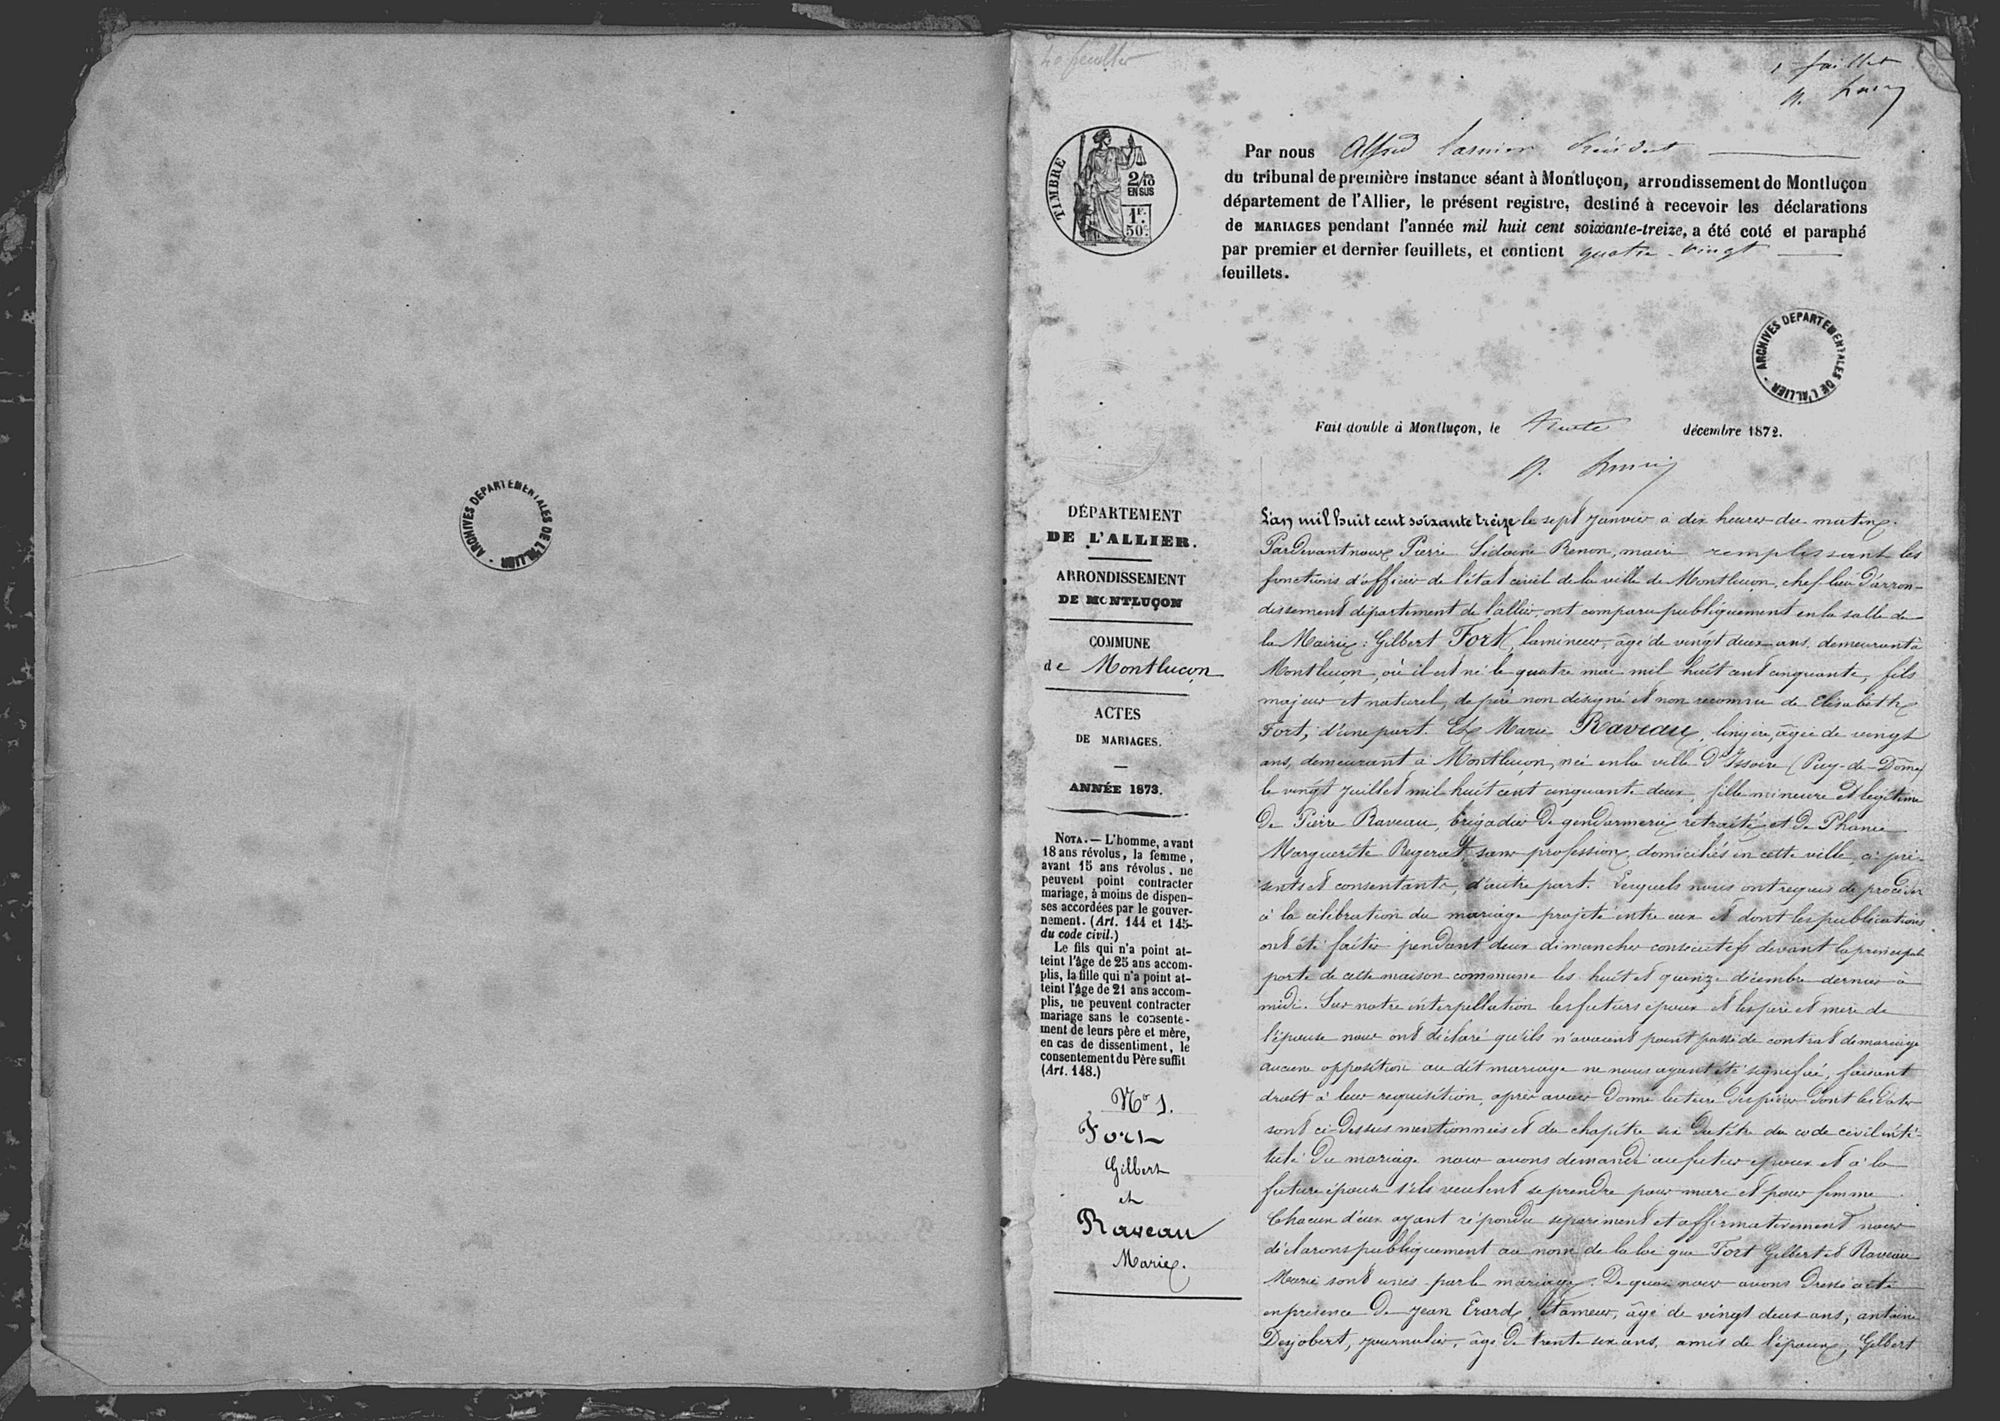 ARCHIVES DEPARTEMENTALES DE L'ALLIER
1er feuillet
TIMBRE
2/10
EN SUS
1F.
50c
Par nous Alfred Président
du tribunal de première instance séant à Montluçon, arrondissement de Montluçon
département de l'Allier, le présent registre, destiné à recevoir les déclarations
de MARIAGES pendant l'année mil huit cent soixante-treize, a été coté et paraphé
par premier et dernier feuillets, et contient quatre-vingt
feuillets.
ARCHIVES DEPARTEMENTALES DE L'ALLIER
Fait double à Montluçon, le trente décembre 1872.
DÉPARTEMENT
DE L'ALLIER.
ARRONDISSEMENT
DE MONTLUÇON
COMMUNE
de Montluçon
ACTES
DE MARIAGES.
ANNÉE 1873.
NOTA. — L'homme, avant
18 ans révolus, la femme,
avant 15 ans révolus, ne
peuvent point contracter
mariage, à moins de dispen-
ses accordées par le gouver-
nement. (Art. 144 et 145
du code civil.)
Le fils qui n'a point at-
teint l'âge de 25 ans accom-
plis, la fille qui n'a point at-
teint l'âge de 21 ans accom-
plis, ne peuvent contracter
mariage sans le consente-
ment de leurs père et mère,
en cas de dissentiment, le
consentement du Père suffit
(Art. 148.)
No 1.
Fort
Gilbert
et
Raveau
Marie.
L'an mil huit cent soixante treize le sept janvier à dix heures du matin.
Pardevant nous Pierre Sidoine Renon, maire remplissant les
fonctions d'officier de l'état civil de la ville de Montluçon, chef lieu d'arron-
dissement département de l'allier, ont comparu publiquement en la salle de
la Mairie : Gilbert Fort, lamineur, âgé de vingt deux ans, demeurant à
Montluçon, où il est né le quatre mai mil huit cent cinquante, fils
majeur et naturel, de père non désigné et non reconnu de Elisabeth
Fort, d'une part. Et Marie Raveau, lingère, âgée de vingt
ans, demeurant à Montluçon, née en la ville d'Issoire (Puy-de-Dôme)
le vingt juillet mil huit cent cinquante deux, fille mineure et légitime
de Pierre Raveau, brigadier de gendarmerie retraité et de Phanie
Marguerite Regerat sans profession, domiciliés en cette ville, ci pré-
sents et consentants, d'autre part. Lesquels nous ont requis de procéder
à la célébration du mariage projeté entre eux et dont les publications
ont été faites pendant deux dimanches consécutifs devant la principale
porte de cette maison commune les huit et quinze décembre dernier à
midi. Sur notre interpellation les futurs époux et les père et mère de
l'épouse nous ont déclaré qu'ils n'avaient point passé de contrat de mariage
aucune opposition au dit mariage ne nous ayant été signifiée, faisant
droit à leur requisition, après avoir donné lecture des pièces dont les dates
sont ci-dessus mentionnées et du chapitre six du titre du code civil inti-
tulé du mariage nous avons demandé au futur époux et à la
future épouse s'ils veulent se prendre pour mari et pour femme
Chacun d'eux ayant répondu séparément et affirmativement, nous
déclarons publiquement au nom de la loi que Fort Gilbert et Raveau
Marie sont unis par le mariage. De quoi nous avons dressé acte
en présence de Jean Erard, Etameur, âgé de vingt deux ans, antoine
Desjobert, journalier, âgé de trente six ans, amis de l'époux, Gilbert